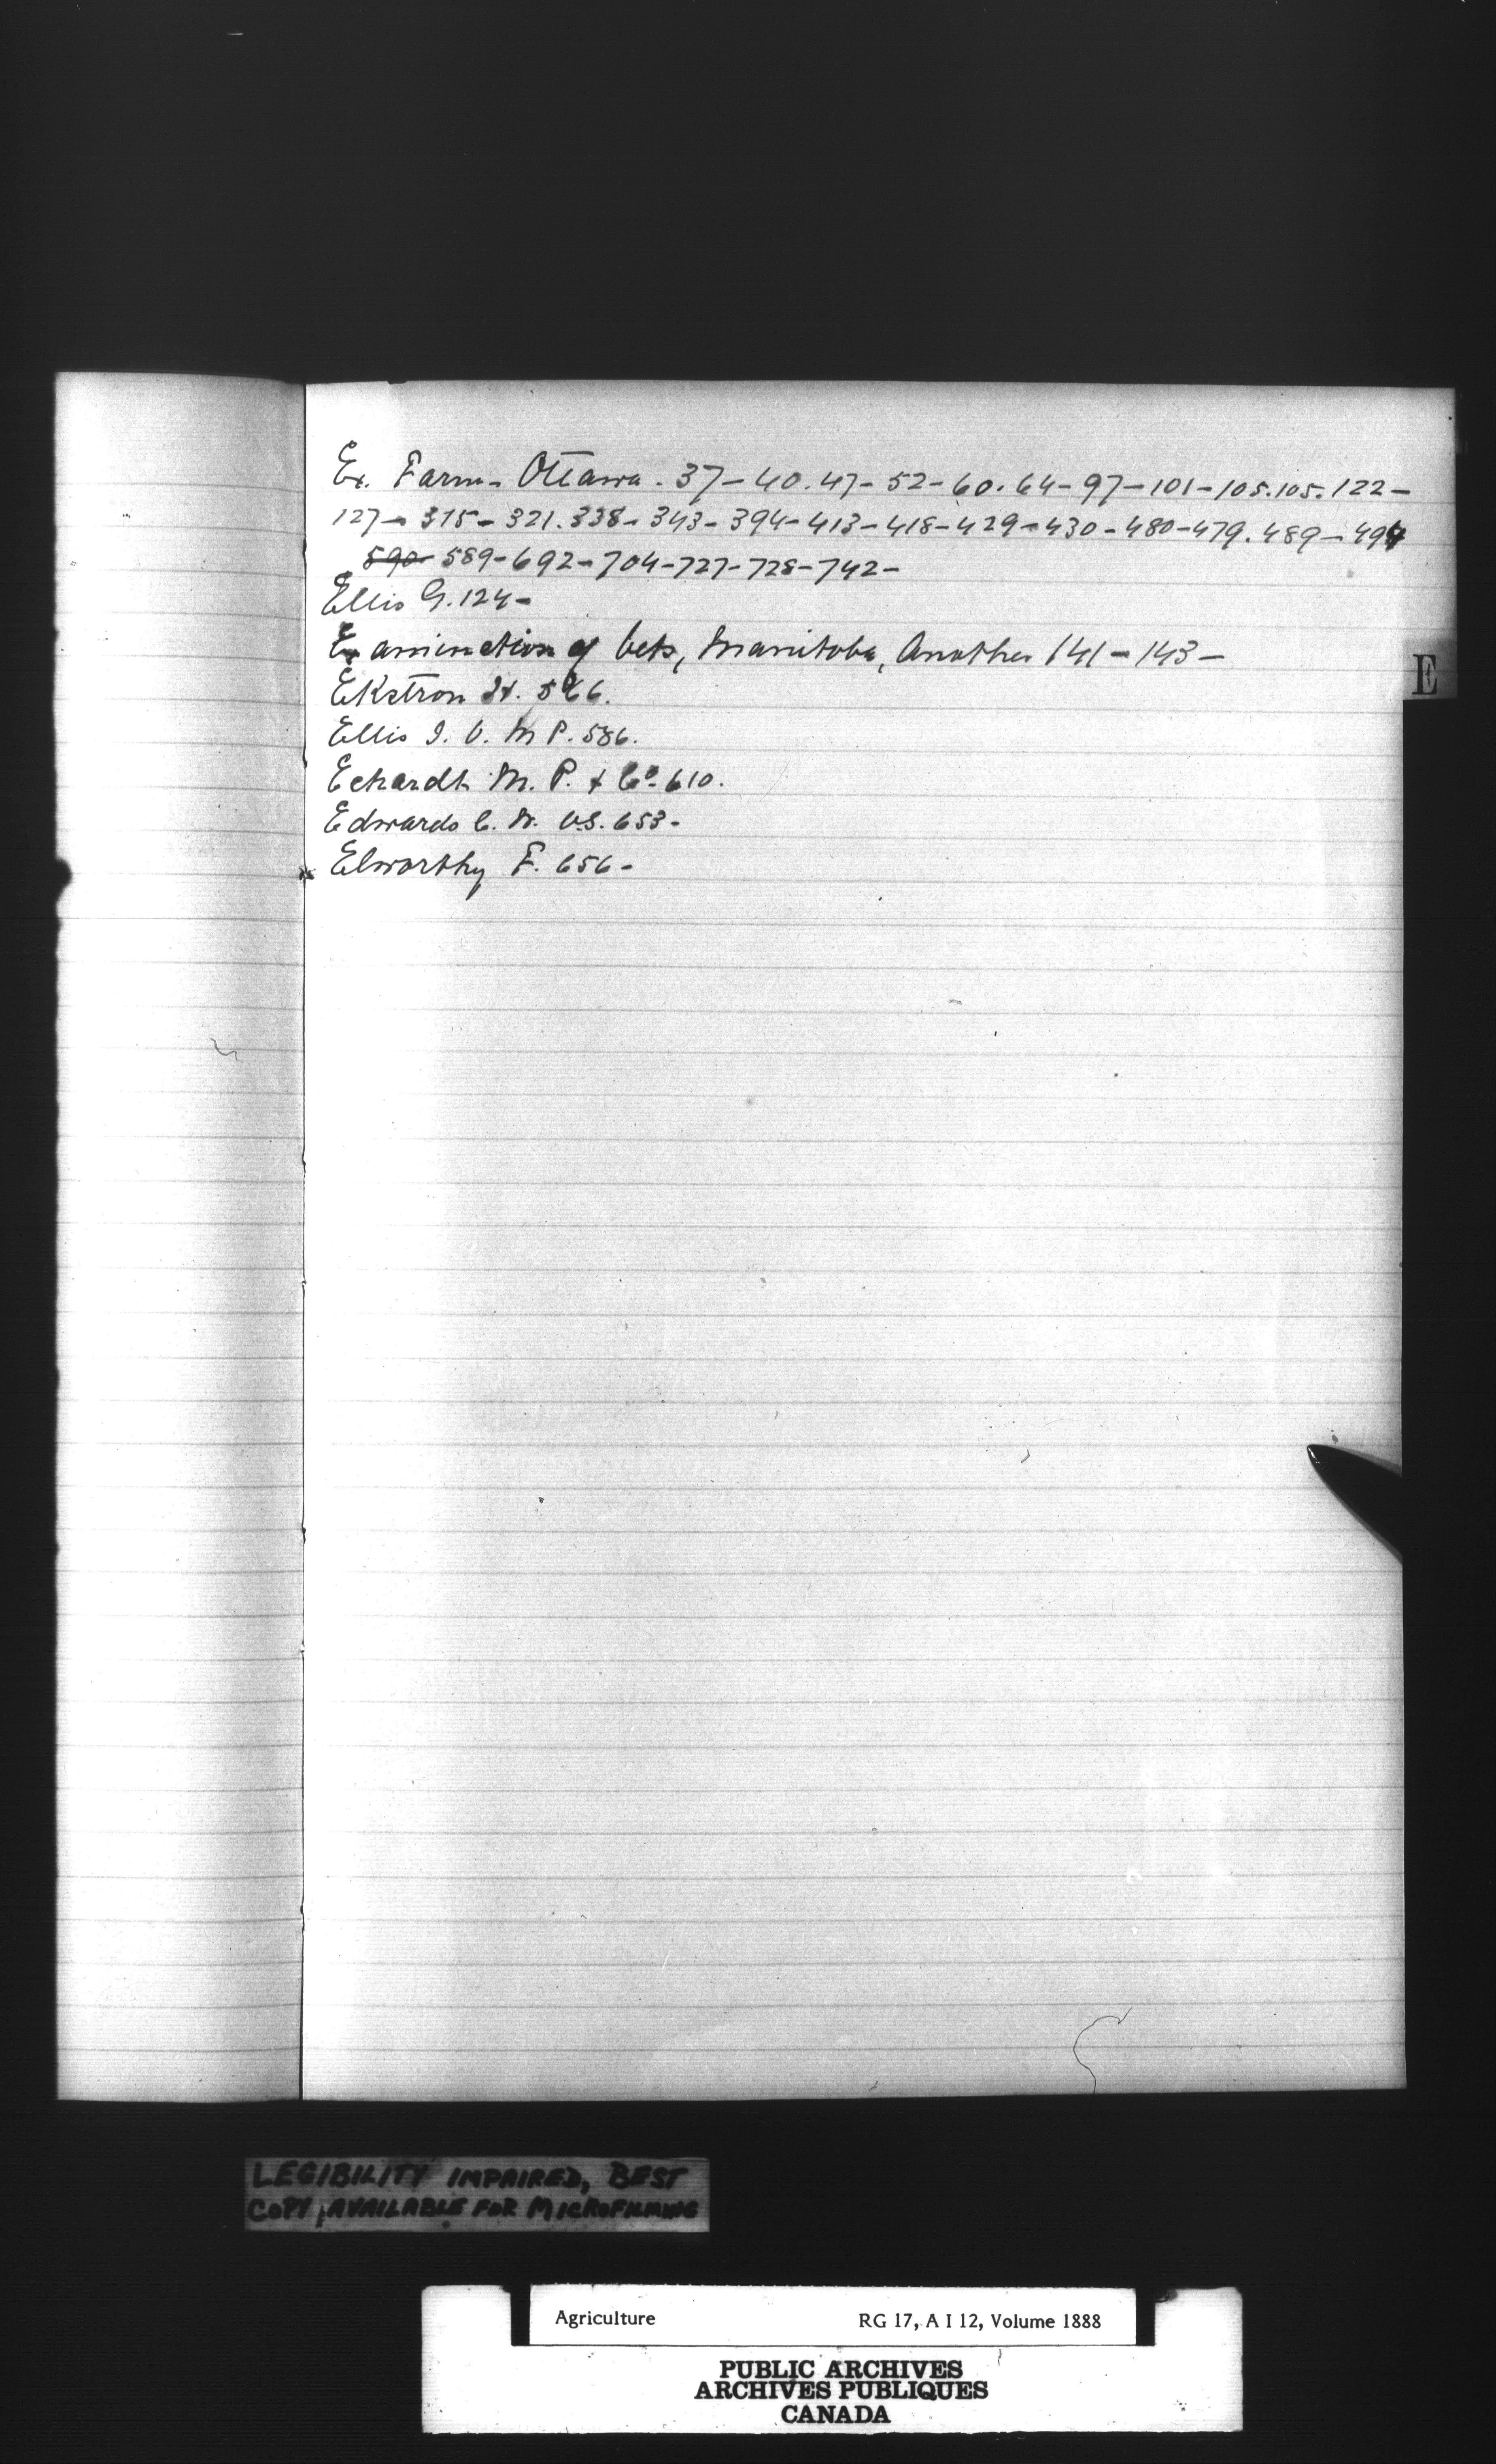 Ex. Farm - Ottawa. 37-40.47-52-60.64-97-101-105.105.122-
127-315-321.338-343-394-413-418-429-430-480-479.489-494
590 589-692-704-727-728-742-
Ellis G. 124-
Examination of Vets, Manitoba, Another 141-143-
E
Ekstron H. 566.
Ellis I. V. M P. 586.
Echardt M. P. & Co. 610.
Edwards C. W. V.S. 653-
x Elworthy F. 656-
LEGIBILITY IMPAIRED, BEST
COPY AVAILABLE FOR MICROFILMING
Agriculture RG 17, A I 12, Volume 1888
PUBLIC ARCHIVES
ARCHIVES PUBLIQUES
CANADA